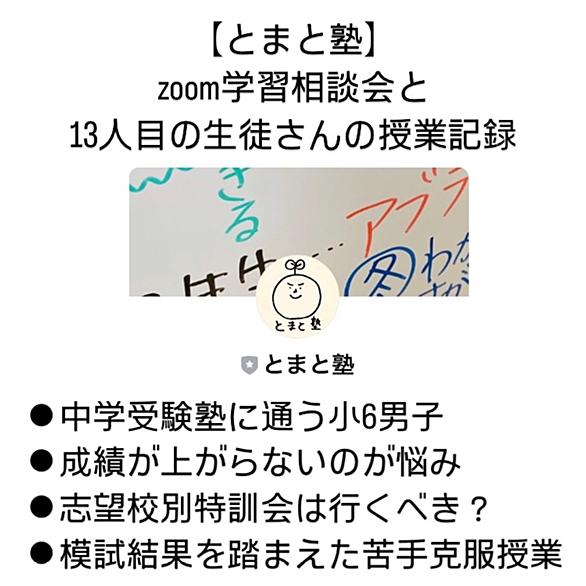 【とまと塾】
zoom学習相談会と
13人目の生徒さんの授業記録
きる
アプラ
年生…
図わか
とまと塾
とまと塾
●中学受験塾に通う小6男子
●成績が上がらないのが悩み
●志望校別特訓会は行くべき？
●模試結果を踏まえた苦手克服授業